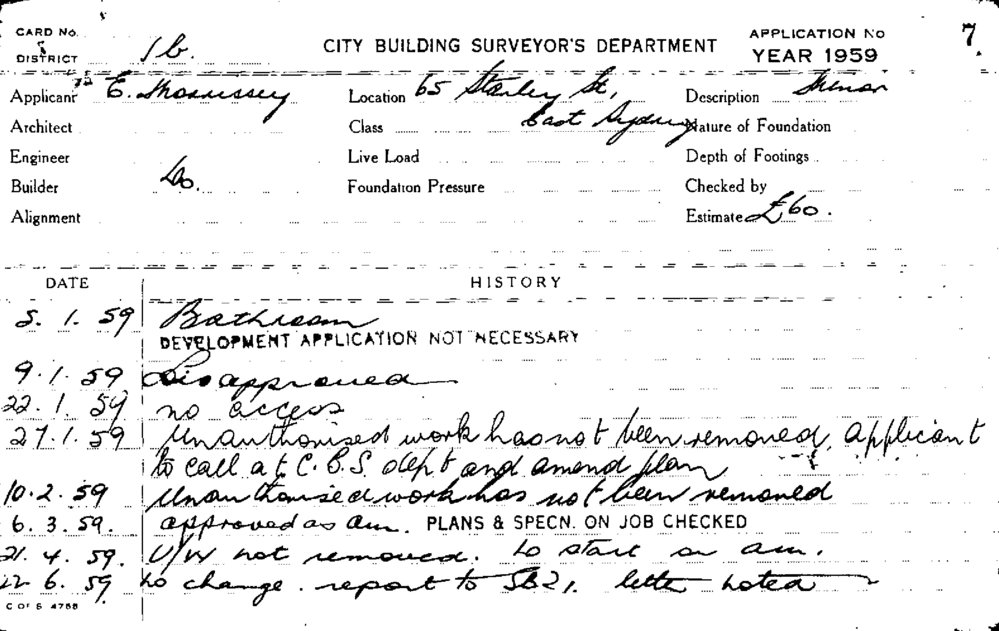 CARD No. CITY BUILDING SURVEYOR'S DEPARTMENT APPLICATION No 7
DISTRICT 1b. YEAR 1959
Applicant E. Morrissey Location 65 Stanley St, Description Minor
Architect Class East Sydney Nature of Foundation
Engineer Live Load Depth of Footings
Builder Do. Foundation Pressure Checked by
Alignment Estimate £60.
DATE HISTORY
5. 1. 59 Bathroom
DEVELOPMENT APPLICATION NOT NECESSARY
9. 1. 59 Disapproved
22. 1. 59 no access
27. 1. 59 Unauthorised work has not been removed, applicant
to call at C.B.S dept and amend plan
10. 2. 59 Unauthorised work has not been removed
6. 3. 59. approved as am. PLANS & SPECN. ON JOB CHECKED
21. 4. 59. U/W not removed. to start on am.
22 6. 59. no change. report to letter noted
C OF S 4788